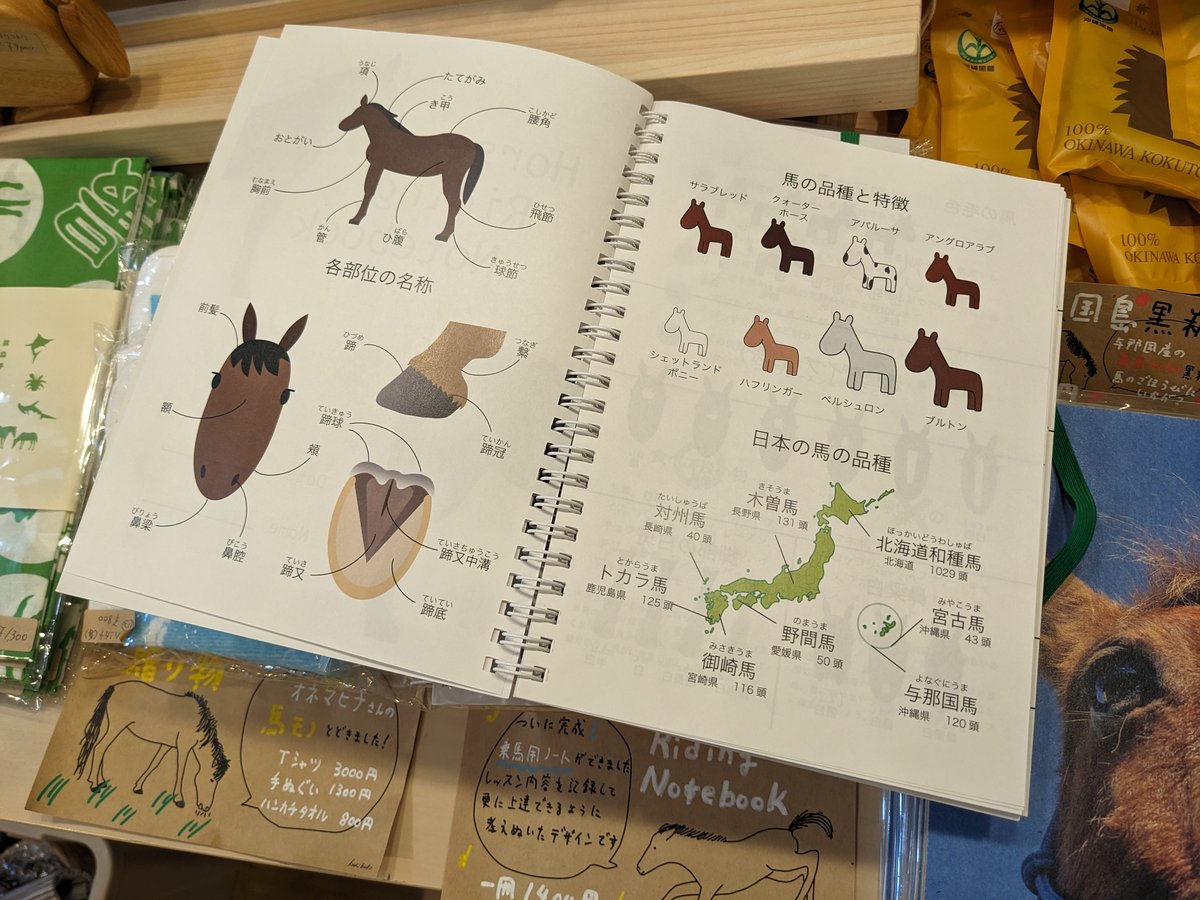 うなじ
項
たてがみ
こう
き甲
こしかど
腰角
おとがい
むなまえ
胸前
ひせつ
飛節
かん
管
ばら
ひ腹
きゅうせつ
球節
各部位の名称
前髪
ひづめ
蹄
つなぎ
繋
額
ていきゅう
蹄球
ていかん
蹄冠
頬
びりょう
鼻梁
びこう
鼻腔
ていさ
蹄叉
ていさちゅうこう
蹄叉中溝
ていてい
蹄底
馬の品種と特徴
サラブレッド
クォーター
ホース
アパルーサ
アングロアラブ
シェットランド
ポニー
ハフリンガー
ペルシュロン
ブルトン
日本の馬の品種
きそうま
木曽馬
長野県 131頭
たいしゅうば
対州馬
長崎県 40頭
ほっかいどうわしゅば
北海道和種馬
北海道 1029頭
とからうま
トカラ馬
鹿児島県 125頭
みやこうま
宮古馬
沖縄県 43頭
のまうま
野間馬
愛媛県 50頭
みさきうま
御崎馬
宮崎県 116頭
よなぐにうま
与那国馬
沖縄県 120頭
100%
OKINAWA KOKUTO
100%
OKINAWA KOKUTO
国島黒
与那国産の
馬のごほうび
オネマヒナさんの
馬モノ とどきました!
Tシャツ 3000円
手ぬぐい 1300円
ハンカチタオル 800円
ついに完成!
乗馬用ノートができました
レッスン内容を記録して
更に上達できるように
考えぬいたデザインです
Riding
Notebook